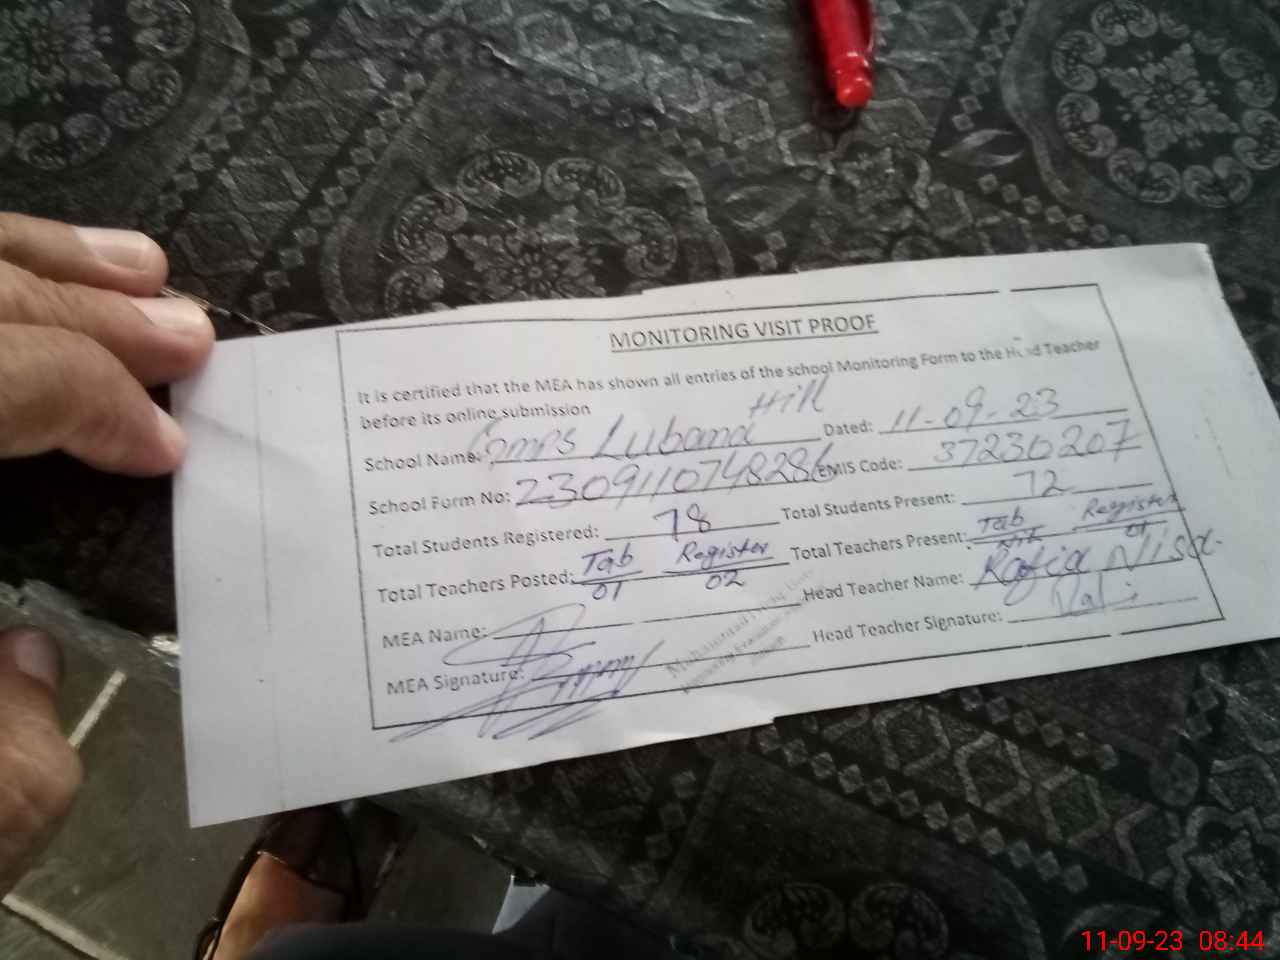 MONITORING VISIT PROOF
It is certified that the MEA has shown all entries of the school Monitoring Form to the Head Teacher
before its online submission
School Name: GMPS Lubana Hill Dated: 11-09-23
School Form No: 2309110748286 EMIS Code: 37230207
Total Students Registered: 78 Total Students Present: 72
Total Teachers Posted: Tab 01 Register 02 Total Teachers Present: Tab Nil Register 01
MEA Name: Head Teacher Name: Rafia Nisa.
MEA Signature: Head Teacher Signature:
11-09-23 08:44